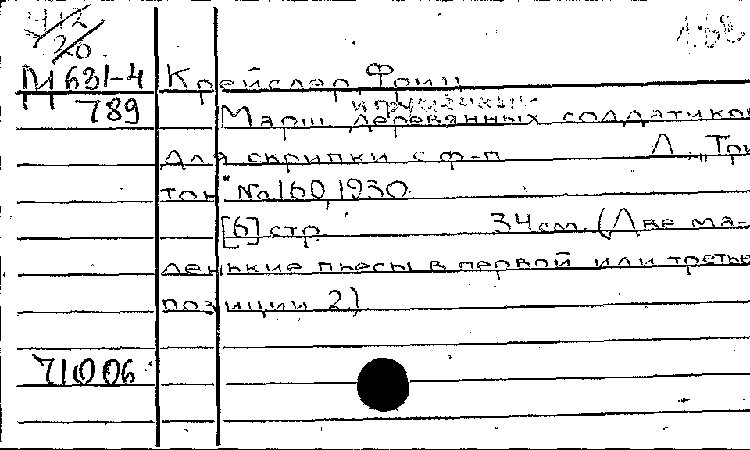 412/20
1.68
М 631-4 Крейслер, Фриц
789 игрушечных
Марш деревянных солдатиков
для скрипки с ф-п Л., „Три
тон" No 160, 1930.
[6] стр. 34 см. (Две ма-
ленькие пьесы в первой или третье
позиции 2)
71006